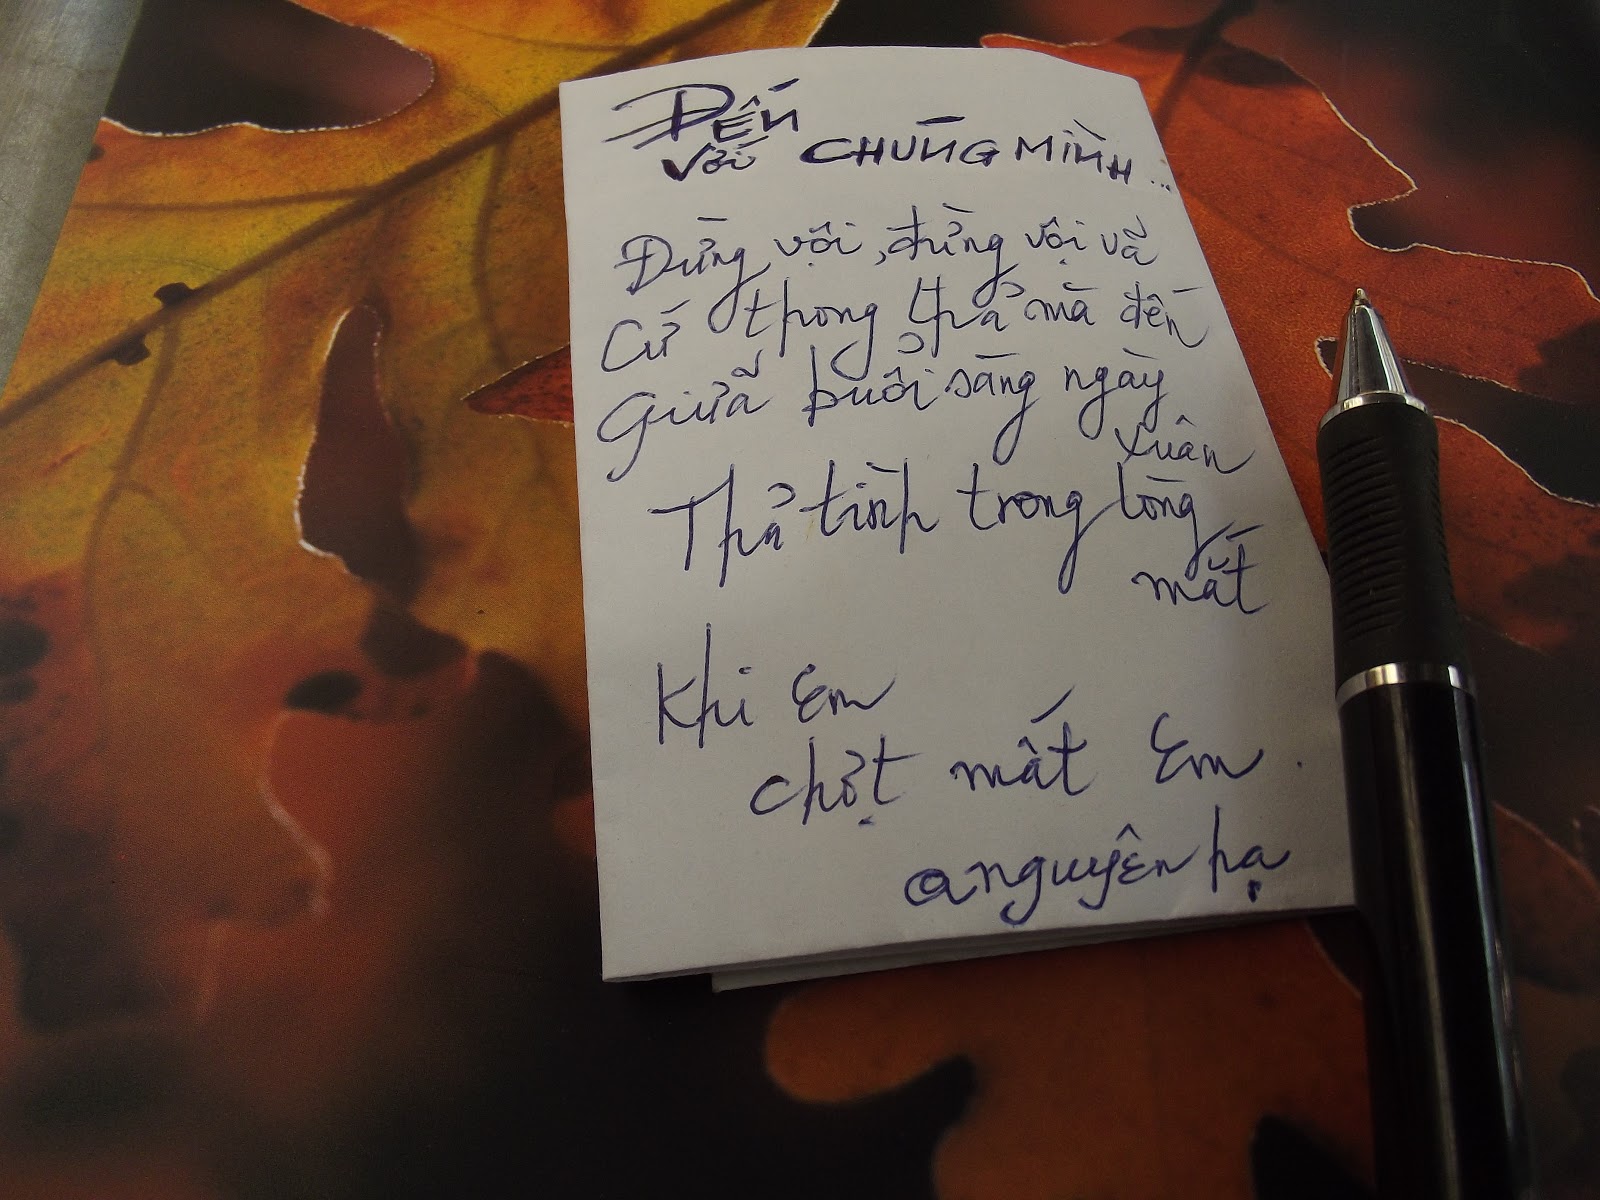 ĐẾN
VỚI CHÚNG MÌNH...
Đừng vội, đừng vội vã
Cứ thong thả mà đến
Giữa buổi sáng ngày
xuân
Thả tình trong lòng
mắt
Khi em
chợt mất em.
nguyên hạ